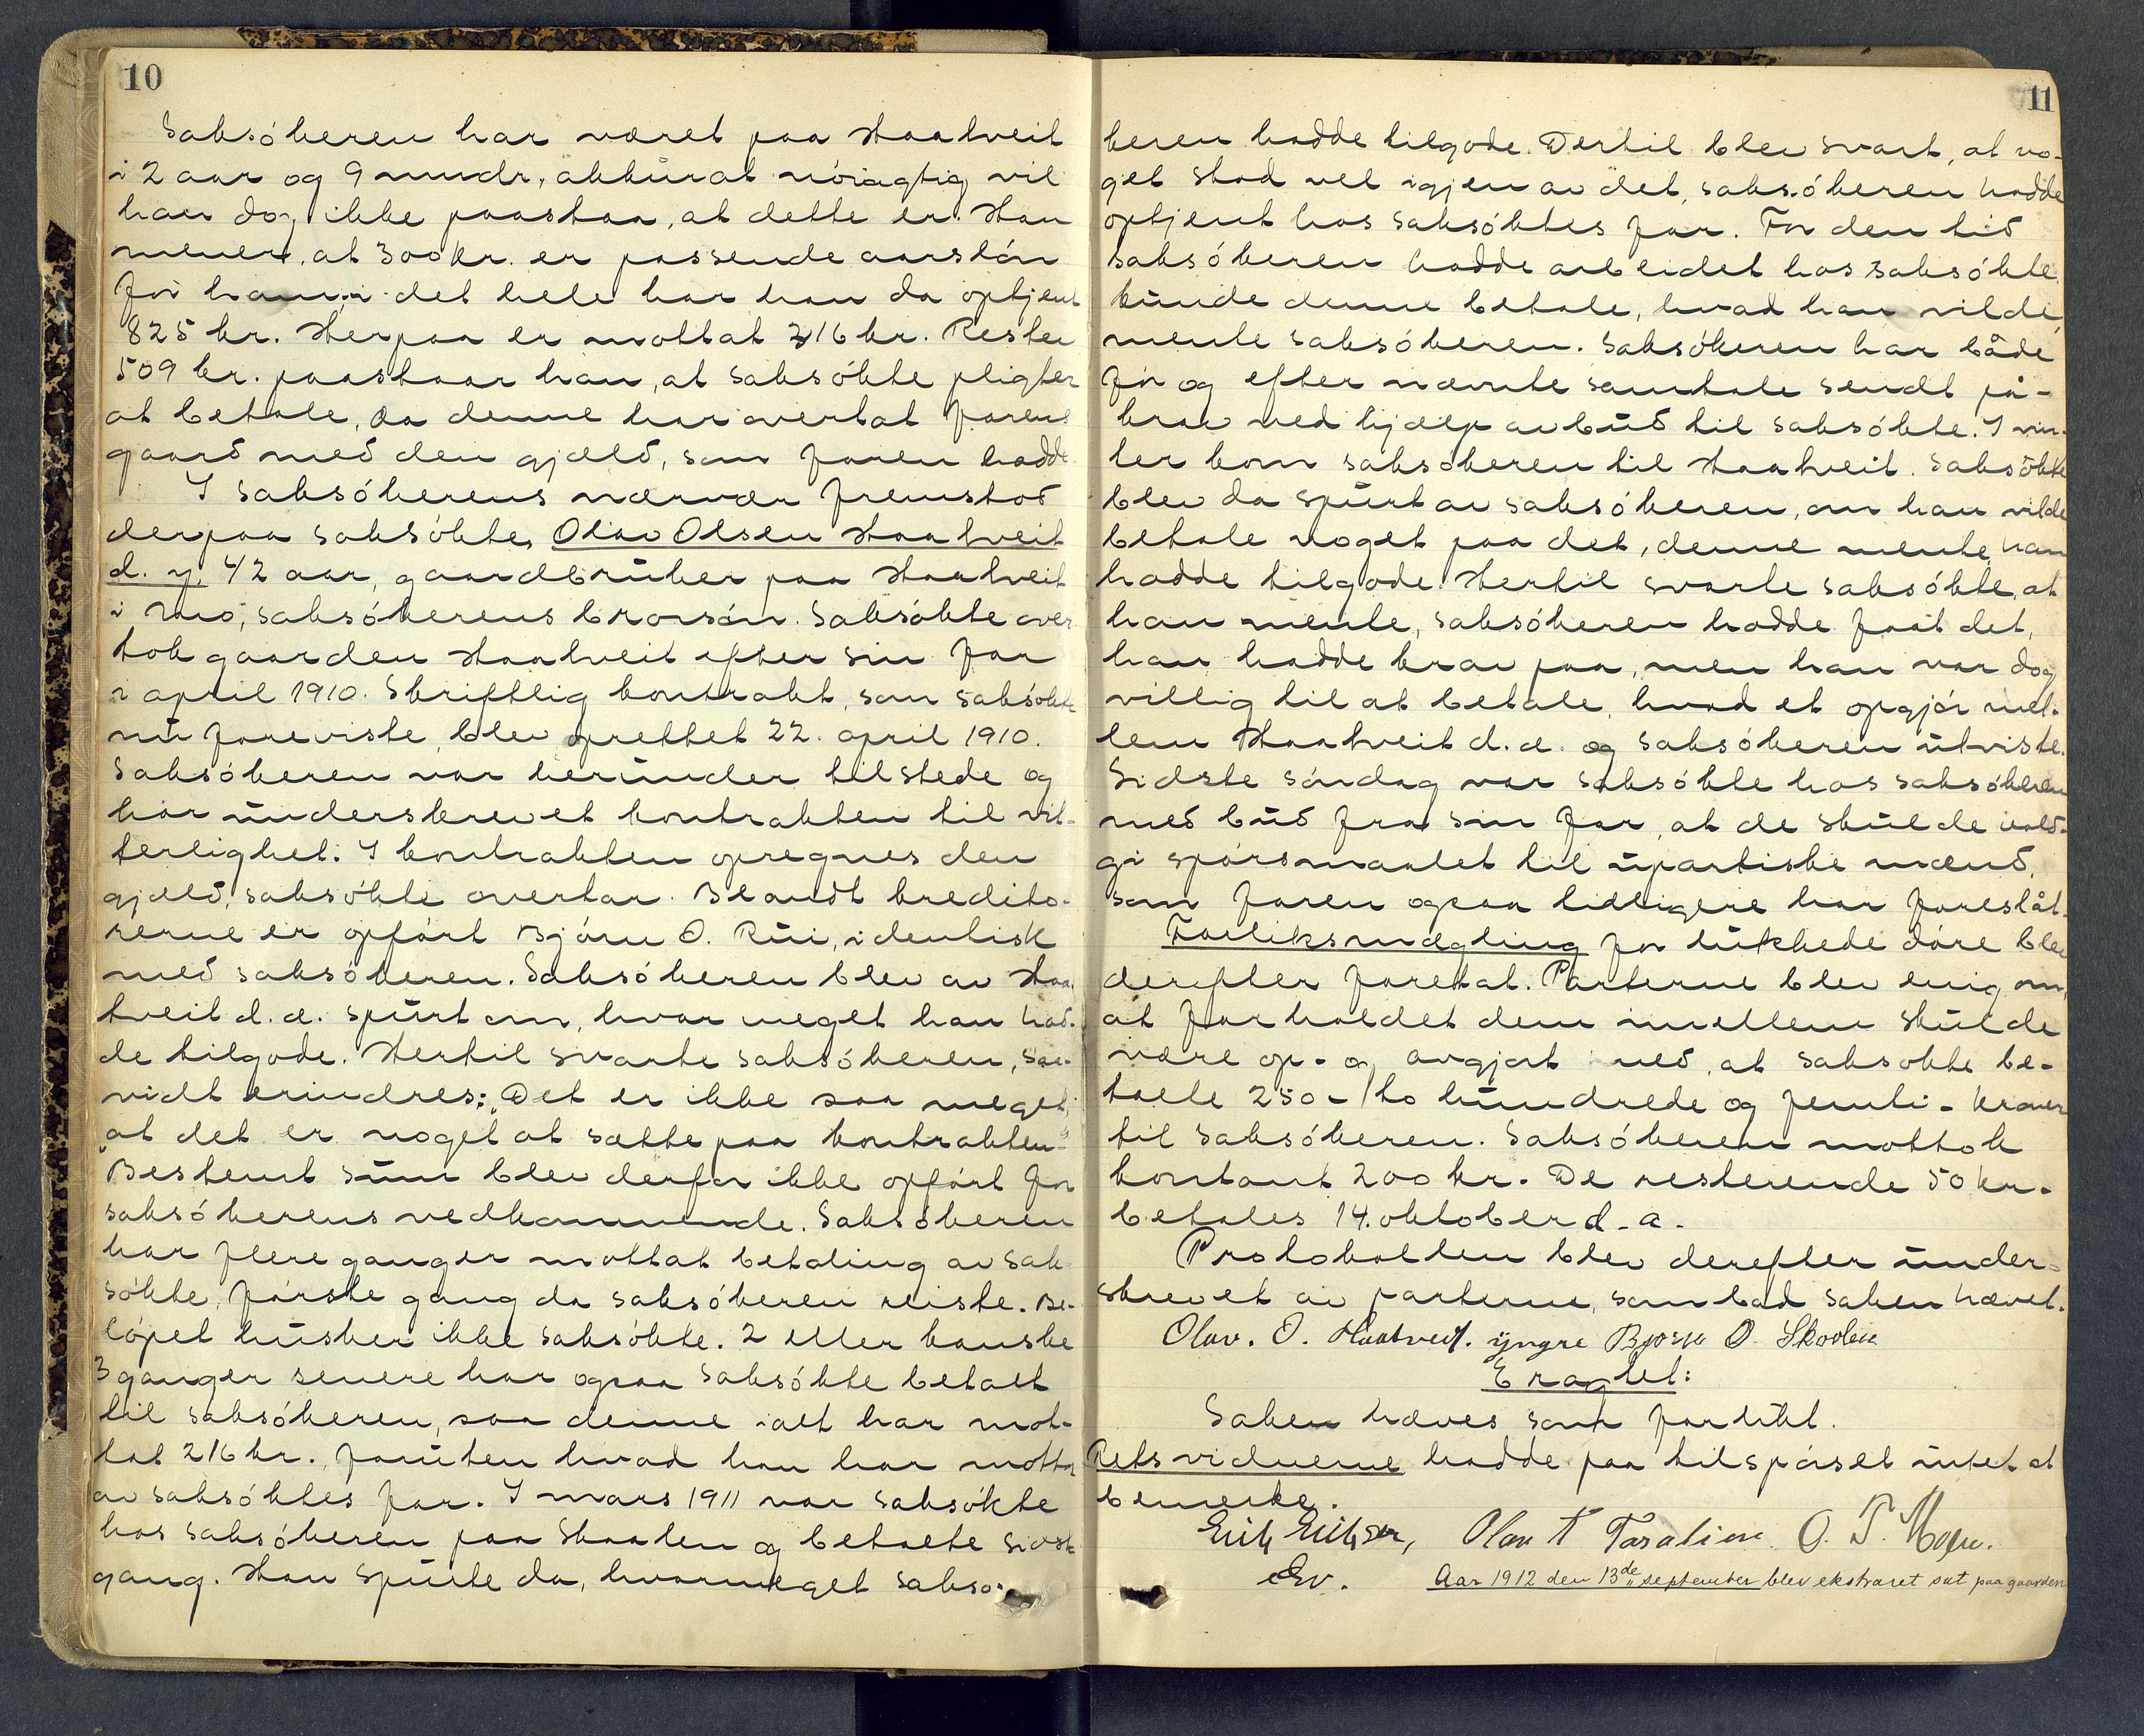 10
Saksökeren har været paa Haatveit
i 2 aar og 9 mndr., akkurat nöiagtig vil
han dog ikke paastaa, at dette er. Han
mener, at 300 kr. er passende aarslön
for ham; i det hele har han da optjent
825 kr. Herpaa er mottat 216 kr. Resten
509 kr. paastaar han, at saksökte pligter
at betale, da denne har overtat farens
gaard med den gjæld, som faren hadde
I saksökerens nærvær fremstod
derpaa saksökte, Olav Olsen Haatveit
d. y. 42 aar, gaardbruker paa Haatveit
i Mo, saksökerens brorsön. Saksökte over
tok gaarden Haatveit efter sin far
i april 1910. Skriftlig kontrakt, som saksökte
nu foreviste, blev oprettet 22. april 1910.
Saksökeren var herunder tilstede og
har underskrevet kontrakten til vit-
terlighet. I kontrakten opregnes den
gjæld, saksökte overtar. Blandt kredito-
rerne er opfört Björn O. Rui, identisk
med saksökeren. Saksökeren blev av Haa
tveit d. e. spurt om, hvor meget han had-
de tilgode. Hertil svarte saksökeren, saa-
vidt erindres: "Det er ikke saa meget,
at det er noget at sætte paa kontrakten"
Bestemt sum blev derfor ikke opfört for
saksökerens vedkommende. Saksökeren
har flere ganger mottat betaling av sak
sökte, förste gang da saksökeren reiste. Be-
löpet husker ikke saksökte. 2 eller kanske
3 ganger senere har ogsaa saksökte betalt
til saksökeren, saa denne ialt har mot-
tat 216 kr., foruten hvad han har mottat
av saksöktes far. I mars 1911 var saksökte
hos saksökeren paa Skaalen og betalte sidste
gang. Han spurte da, hvormeget saksö-
11
keren hadde tilgode. Dertil blev svart, at no-
get stod vel igjen av det, saksökeren hadde
optjent hos saksöktes far. For den tid
saksökeren hadde arbeidet hos saksökte
kunde denne betale, hvad han vilde,
mente saksökeren. Saksökeren har både
för og efter nævnte samtale sendt på-
krav ved hjælp av bud til saksökte. I vin-
ter kom saksökeren til Haatveit. Saksökte
blev da spurt av saksökeren, om han vilde
betale noget paa det, denne mente, han
hadde tilgode. Hertil svarte saksökte, at
han mente, saksökeren hadde faat det,
han hadde krav paa, men han var dog
villig til at betale, hvad et opgjör mel-
lem Haatveit d. e. og saksökeren utviste.
Sidste söndag var saksökte hos saksökeren
med bud fra sin far, at de skulde vold-
gi spörsmaalet til upartiske mænd,
som faren ogsaa tidligere har foreslåt.
Forliksmægling for lukkede döre blev
derefter foretat. Parterne blev enig om,
at forholdet dem imellem skulde
være op- og avgjort med, at saksökte be-
talte 250 - to hundrede og femti - kroner
til saksökeren. Saksökeren mottok
kontant 200 kr. De resterende 50 kr.
betales 14. oktober d. a.
Protokollen blev derefter under-
skrevet av parterne, som bad saken hævet.
Olav. O. Haatveit. yngre Bjørn O Skoolen
Eragtet:
Saken hæves som forlikt.
Retsvidnerne hadde paa tilspörsel intet at
bemerke.
Erik Eriksen, Olav T Taralien O. T. Moen.
Ev. Aar 1912 den 13de september blev ekstraret sat paa gaarden